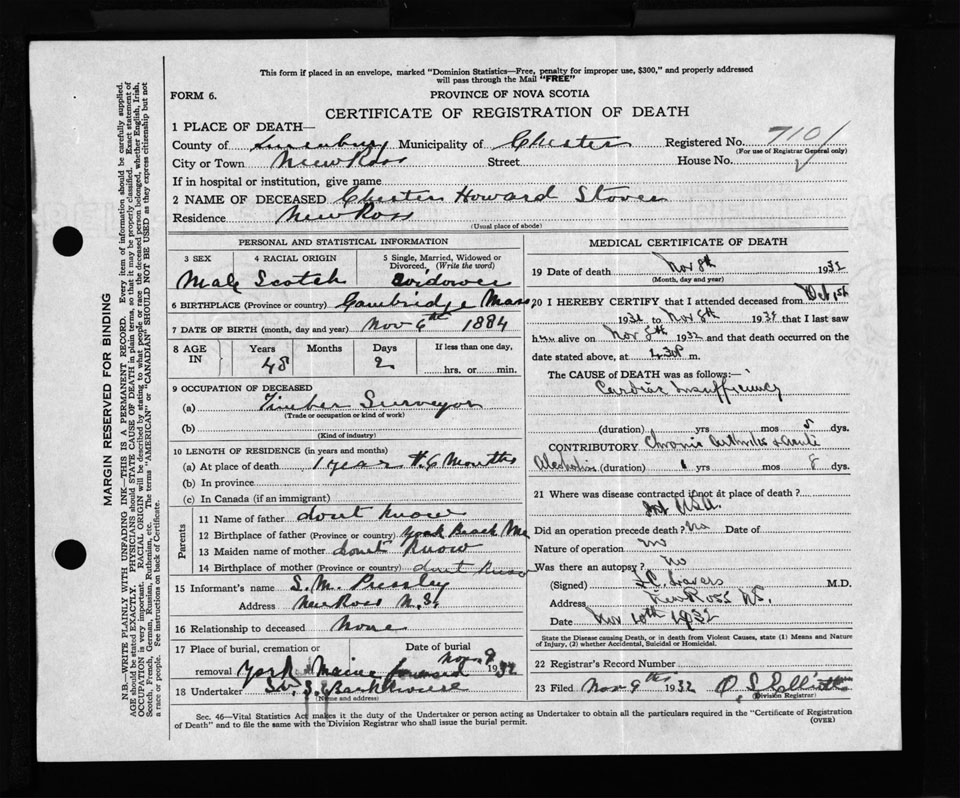 This form if placed in an envelope, marked "Dominion Statistics—Free, penalty for improper use, $300," and properly addressed
will pass through the Mail "FREE"
FORM 6.
PROVINCE OF NOVA SCOTIA
CERTIFICATE OF REGISTRATION OF DEATH
1 PLACE OF DEATH—
County of Lunenburg Municipality of Chester Registered No. 7101
(For use of Registrar General only)
City or Town New Ross Street House No.
If in hospital or institution, give name
2 NAME OF DECEASED Chester Howard Stover
Residence New Ross
(Usual place of abode)
PERSONAL AND STATISTICAL INFORMATION
3 SEX 4 RACIAL ORIGIN 5 Single, Married, Widowed or
Divorced, (Write the word)
Male Scotch Widower
6 BIRTHPLACE (Province or country) Cambridge Mass
7 DATE OF BIRTH (month, day and year) Nov 6th 1884
8 AGE IN Years Months Days If less than one day,
48 2 hrs. or min.
9 OCCUPATION OF DECEASED
(a) Timber Surveyor
(Trade or occupation or kind of work)
(b)
(Kind of industry)
10 LENGTH OF RESIDENCE (in years and months)
(a) At place of death 1 year & 6 Months
(b) In province
(c) In Canada (if an immigrant)
Parents
11 Name of father dont Know
12 Birthplace of father (Province or country) York Beach Me
13 Maiden name of mother dont Know
14 Birthplace of mother (Province or country) dont Know
15 Informant's name S. M. Pressley
Address New Ross N.S.
16 Relationship to deceased None
17 Place of burial, cremation or Date of burial
removal York Maine Nov 9 1932
18 Undertaker S. Barkhouse
(Name and address)
MEDICAL CERTIFICATE OF DEATH
19 Date of death Nov 8th 1932
(Month, day and year)
20 I HEREBY CERTIFY that I attended deceased from Oct 1st
1932 to Nov 8th 1932 that I last saw
him alive on Nov 8th 1932 and that death occurred on
date stated above, at 4.30 P m.
The CAUSE of DEATH was as follows:—
Cardiac Insufficiency
(duration) yrs mos 5 dys.
CONTRIBUTORY Chronic Arthritis & Acute
Alcoholism (duration) 1 yrs mos 8 dys.
21 Where was disease contracted if not at place of death?
USA.
Did an operation precede death? No Date of
Nature of operation no
Was there an autopsy? No
(Signed) Travers M.D.
Address New Ross N.S.
Date Nov 10th 1932
State the Disease causing Death, or in death from Violent Causes, state (1) Means and Nature
of Injury, (2) whether Accidental, Suicidal or Homicidal.
22 Registrar's Record Number
23 Filed Nov 9th 1932 O. S. Elliott
(Division Registrar)
Sec. 46—Vital Statistics Act makes it the duty of the Undertaker or person acting as Undertaker to obtain all the particulars required in the "Certificate of Registration
of Death" and to file the same with the Division Registrar who shall issue the burial permit. (OVER)
MARGIN RESERVED FOR BINDING
N.B.—WRITE PLAINLY WITH UNFADING INK—THIS IS A PERMANENT RECORD. Every item of information should be carefully supplied.
AGE should be stated EXACTLY. PHYSICIANS should STATE CAUSE OF DEATH in plain terms, so that it may be properly classified. Exact statement of
OCCUPATION is very important. RACIAL ORIGIN will be described by stating to what people or race the deceased person belonged, whether English, Irish,
Scotch, French, German, Russian, Ruthenian, etc. The terms "AMERICAN" or "CANADIAN" SHOULD NOT BE USED as they express citizenship but not
a race or people. Fee instructions on back of Certificate.